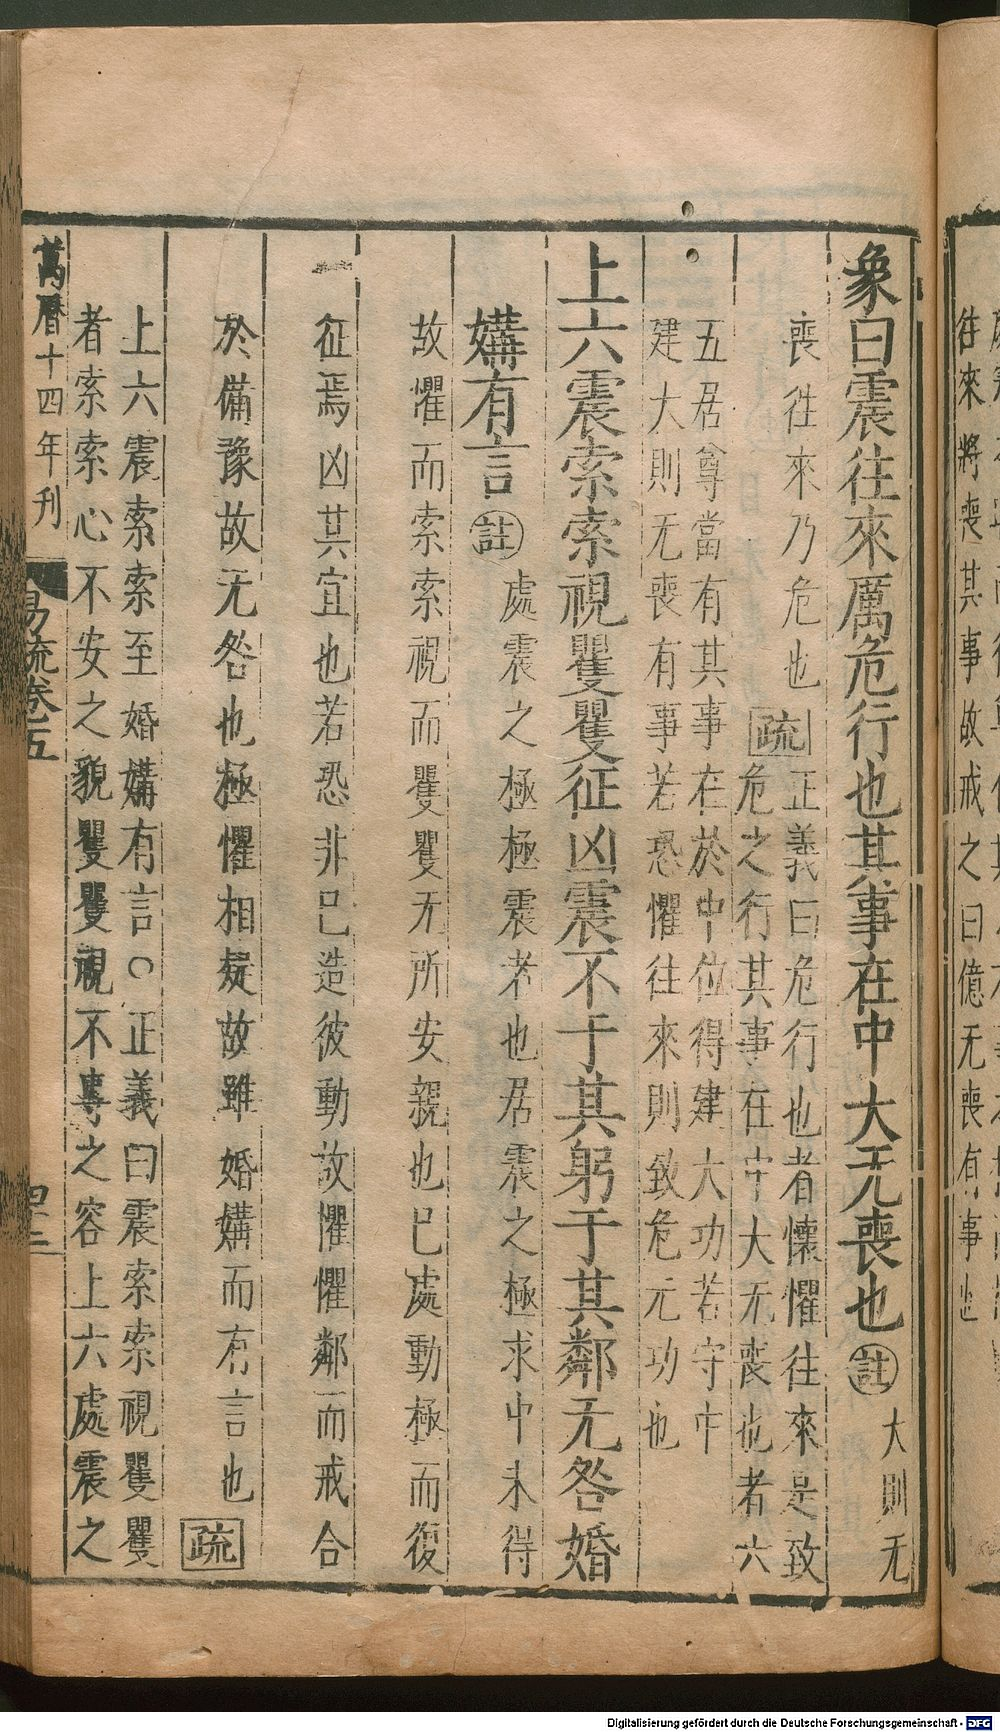 象曰震往來厲危行也其事在中大无喪也註大則无
喪徃來乃危也疏正義曰危行也者懷懼往來是致
危之行其事在中大无喪也者六
五居尊當有其事在於中位得建大功若守中
建大則无喪有事若恐懼往來則致危无功也
上六震索索視矍矍征凶震不于其躬于其鄰无咎婚
媾有言註處震之極極震者也居震之極求中未得
故懼而索索視而矍矍无所安親也已處動極而復
征焉凶其宜也若恐非已造彼動故懼懼鄰而戒合
於備豫故无咎也極懼相疑故雖婚媾而有言也疏
上六震索索至婚媾有言○正義曰震索索視矍矍
者索索心不安之貌矍矍視不專之容上六處震之
萬曆十四年刋
易疏卷五
四十二
往來將喪其事故戒之曰億无喪有事也
Digitalisierung gefördert durch die Deutsche Forschungsgemeinschaft - DFG